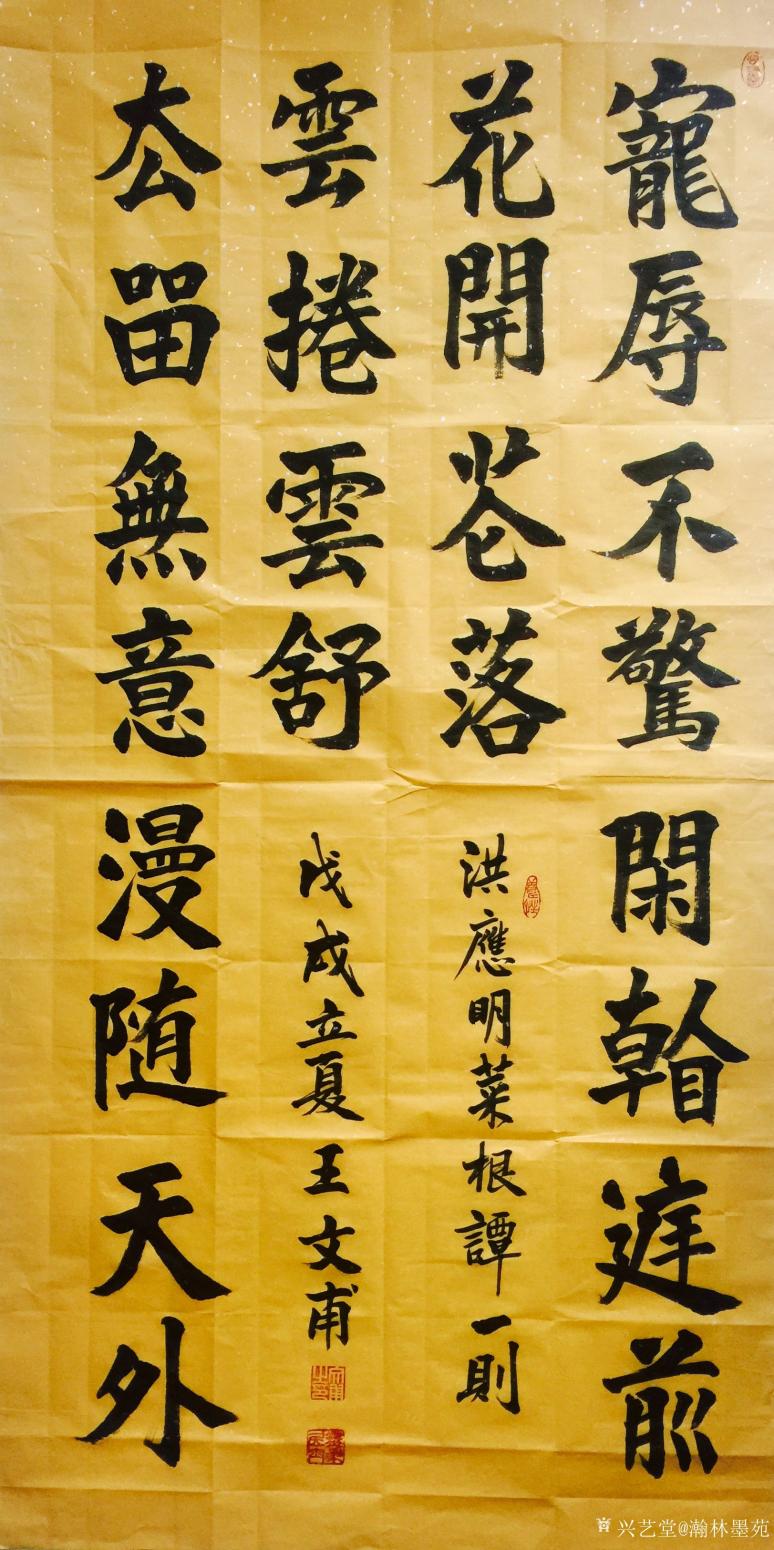 寵辱不驚閑看庭前
花開花落
洪應明菜根譚一則
雲捲雲舒
戊戌立夏王文甫
去留無意漫随天外
兴艺堂@瀚林墨苑